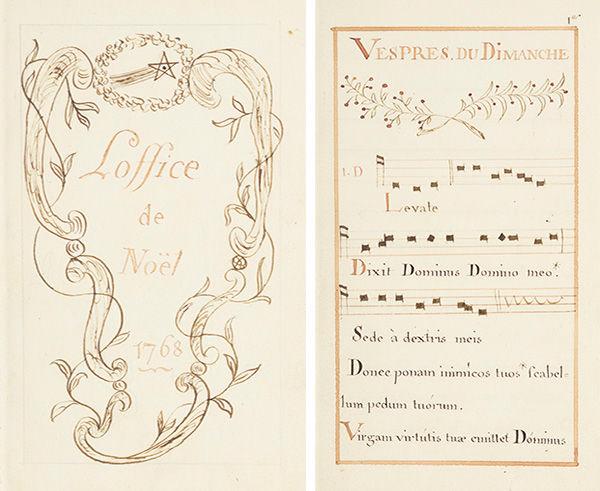 Loffice
de
Noël
1768
1er
VESPRES. DU DIMANCHE
1. D
Levate
Dixit Dominus Domino meo:
Sede à dextris meis
Donec ponam inimicos tuos scabel-
lum pedum tuórum.
Virgam virtútis tuæ emittet Dóminus